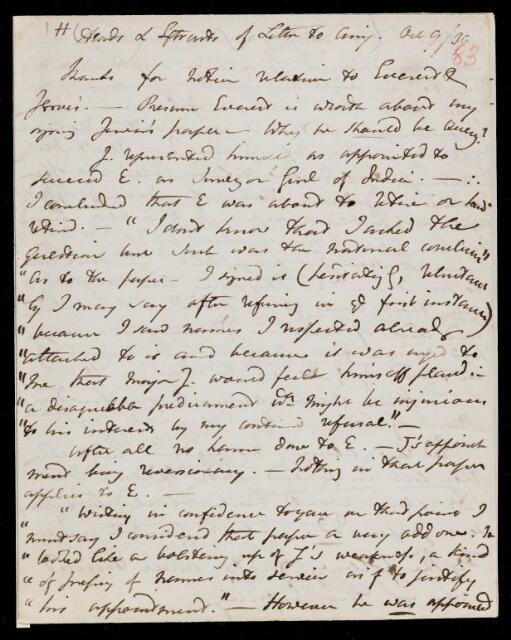 (Heads & Extracts of Letter to Airy. Oct 9/39
83
Thanks for notice relative to Everest &
Jervis. — Presume Everest is wroth about my
signing Jervis's paper — Why he should be Query?
J. represented himself as appointed to
succeed E. as Surveyor Genl of India. — ∴
I concluded that E was about to retire or had
retired. — "I don't know that I asked the
question but such was the natural conclusion"
"As to the paper — I signed it (hesitatingly, reluctant
"ly I may say after refusing in ye first instance)
"because I saw names I respected already
"attached to it and because it was urged to
"me that Major J. would feel himself placed in
"a disagreeable predicament wch might be injurious
"to his interests by my continued refusal." —
After all no harm done to E. — J's appoint
ment being reversionary. — Nothing in that paper
applies to E. —
"Writing in confidence to you on that point I
"must say I considered that paper a very odd one. It
"looked like a bolstering up of J's weakness, a kind
"of pressing of names into service as if to justify
"his appointment." — However he was appointed